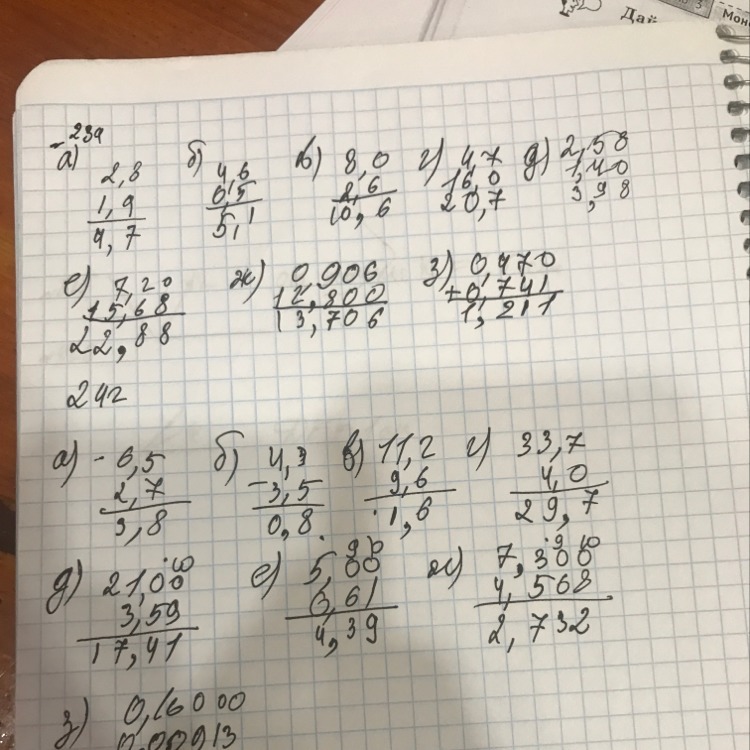 Даё
3
Мон
239
а) б) в) г) д)
2,8 4,6 8,0 4,7 2,58
1,9 0,5 2,6 16,0 1,40
4,7 5,1 10,6 20,7 3,98
е) ж) з)
7,20 0,906 0,470
15,68 12,800 +0,741
22,88 13,706 1,211
242
а) - 6,5 б) 4,3 в) 11,2 г) 33,7
2,7 -3,5 9,6 4,0
3,8 0,8 1,6 29,7
10 9 10 9 10
д) 21,00 е) 5,00 ж) 7,300
3,59 0,61 4,568
17,41 4,39 2,732
з) 0,16000
0,00913